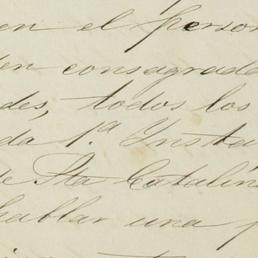 en el person
en consagrado
des, todos los
da 1.ª Insta
e Sta Catalin
hablar una p